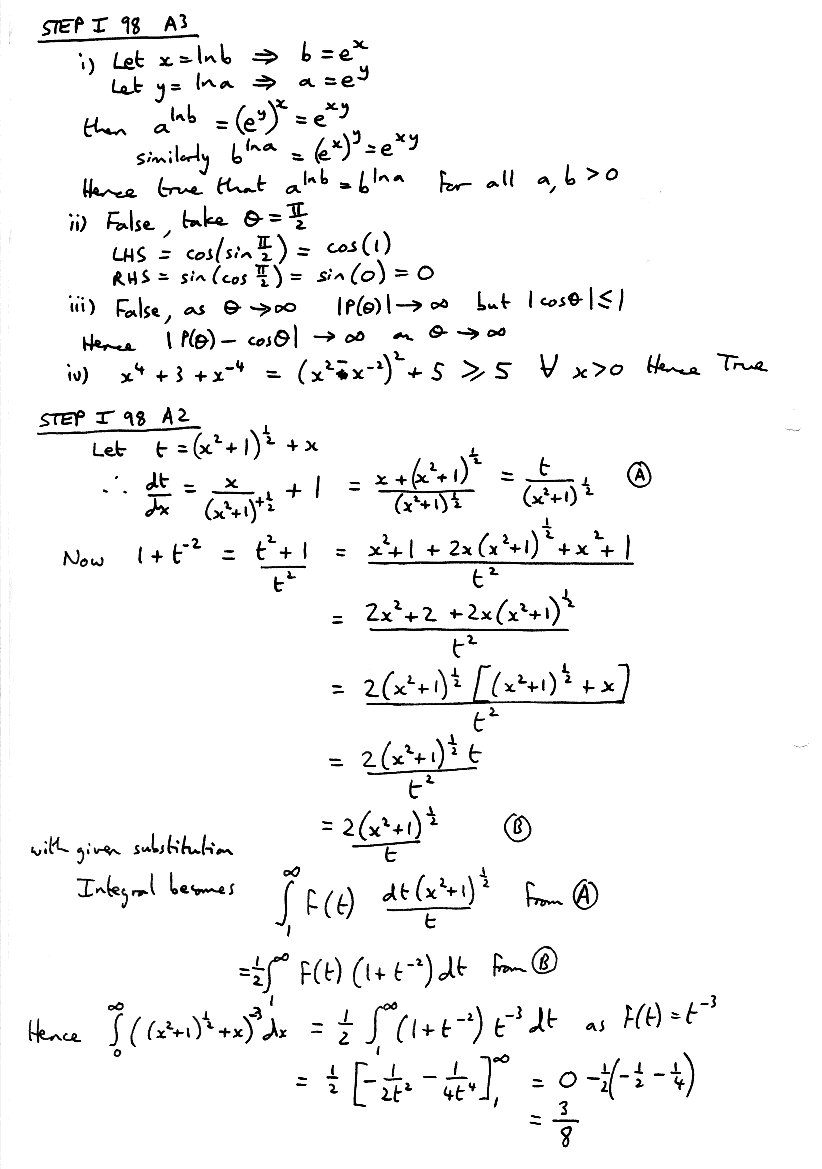 STEP I 98 A3
i) Let x = ln b ⇒ b = e^x
Let y = ln a ⇒ a = e^y
then a^{ln b} = (e^y)^x = e^{xy}
similarly b^{ln a} = (e^x)^y = e^{xy}
Hence true that a^{ln b} = b^{ln a} for all a, b > 0
ii) False, take θ = π/2
LHS = cos(sin π/2) = cos(1)
RHS = sin(cos π/2) = sin(0) = 0
iii) False, as θ → ∞ |P(θ)| → ∞ but |cosθ| ≤ 1
Hence |P(θ) − cosθ| → ∞ as θ → ∞
iv) x^4 + 3 + x^{-4} = (x^2 − x^{-2})^2 + 5 ⩾ 5 ∀ x > 0 Hence True
STEP I 98 A2
Let t = (x^2 + 1)^{1/2} + x
∴ dt/dx = x/(x^2+1)^{+1/2} + 1 = (x + (x^2+1)^{1/2})/(x^2+1)^{1/2} = t/(x^2+1)^{1/2} Ⓐ
Now 1 + t^{-2} = (t^2 + 1)/t^2 = (x^2 + 1 + 2x(x^2+1)^{1/2} + x^2 + 1)/t^2
= (2x^2 + 2 + 2x(x^2+1)^{1/2})/t^2
= 2(x^2+1)^{1/2} [(x^2+1)^{1/2} + x]/t^2
= 2(x^2+1)^{1/2} t/t^2
= 2(x^2+1)^{1/2}/t Ⓑ
with given substitution
Integral becomes ∫_1^∞ f(t) dt (x^2+1)^{1/2}/t from Ⓐ
= 1/2 ∫_1^∞ f(t) (1 + t^{-2}) dt from Ⓑ
Hence ∫_0^∞ ((x^2+1)^{1/2} + x)^{-3} dx = 1/2 ∫_1^∞ (1 + t^{-2}) t^{-3} dt as f(t) = t^{-3}
= 1/2 [−1/2t^2 − 1/4t^4]_1^∞ = 0 − 1/2(−1/2 − 1/4)
= 3/8